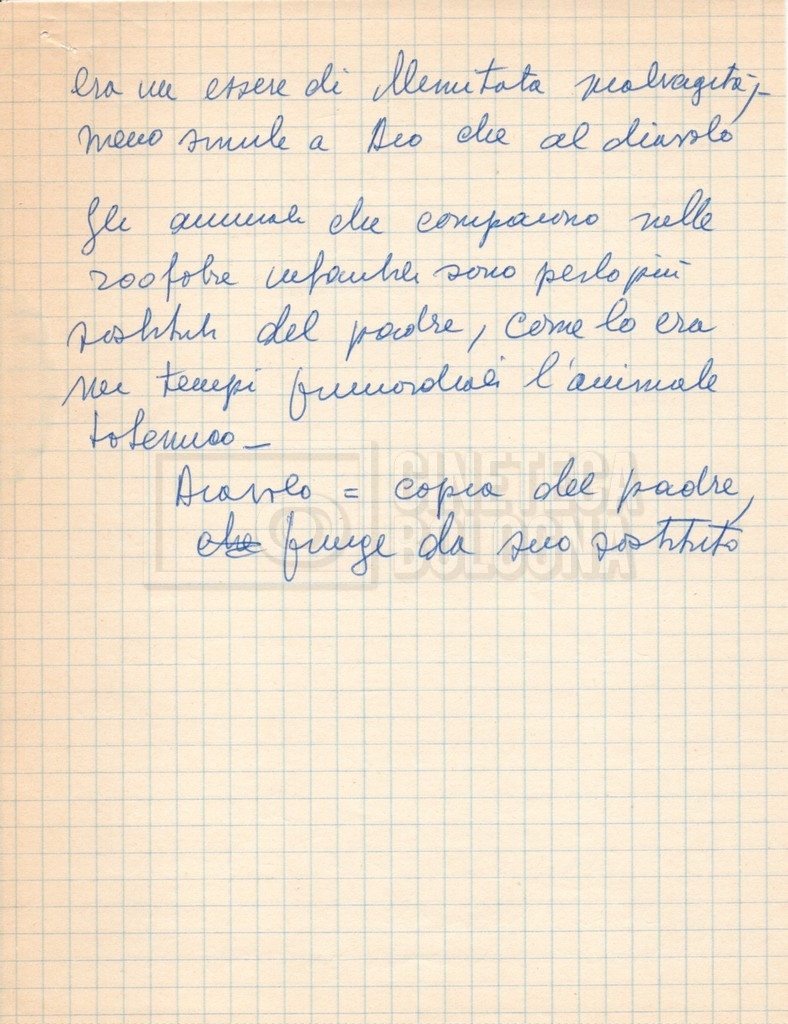 era un essere di illimitata malvagità,
meno simile a Dio che al diavolo
Gli animali che compaiono nelle
zoofobie infantili sono perlopiù
sostituti del padre, come lo era
nei tempi primordiali l'animale
totemico –
Diavolo = copia del padre,
che funge da suo sostituto
CINETECA
BOLOGNA